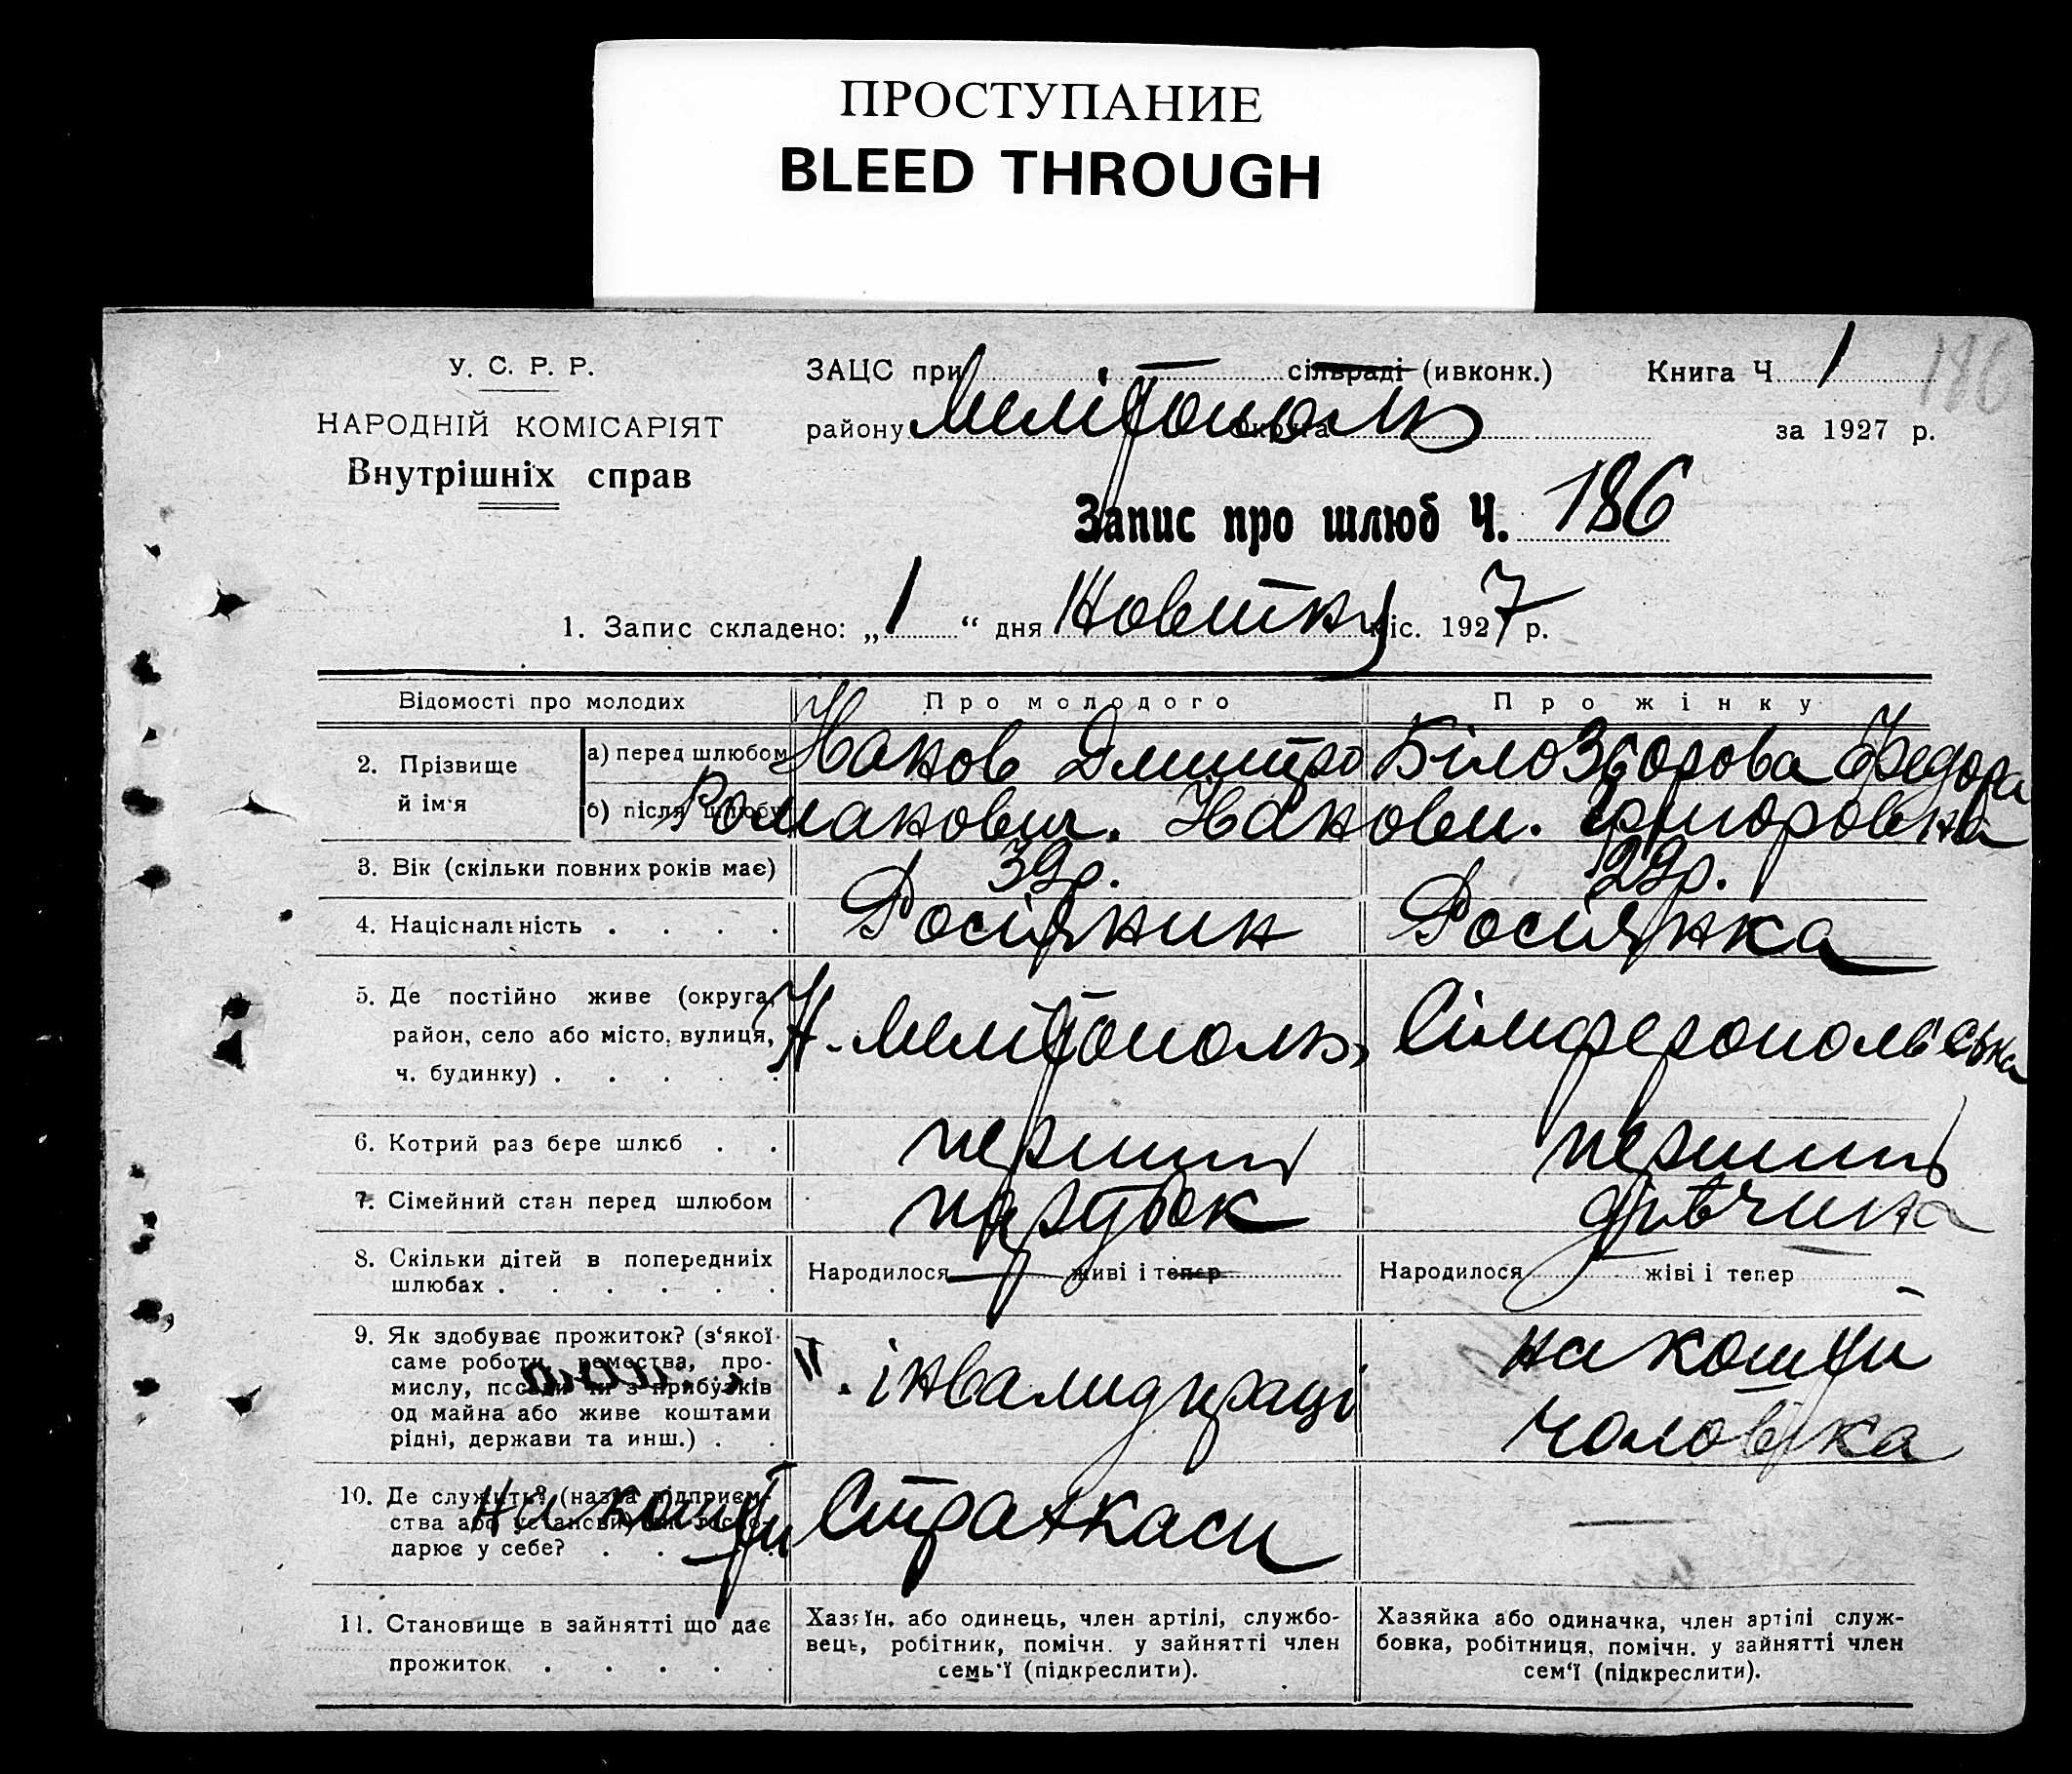 ПРОСТУПАНИЕ
BLEED THROUGH
186
У. С. Р. Р.
НАРОДНІЙ КОМІСАРІЯТ
Внутрішніх справ
ЗАЦС при сільраді (ивконк.) Книга Ч. 1
району Мелітополь округа за 1927 р.
Запис про шлюб Ч. 186
1. Запис складено: „ 1 “ дня міс. 1927 р.
Відомості про молодих Про молодого Про жінку
2. Прізвище й ім'я
а) перед шлюбом Дмитро Федора
б) після шлюбу Романович. Григоровна
3. Вік (скільки повних років має) 39 р. 29 р.
4. Національність . . . . Росіянин Росіянка
5. Де постійно живе (округа,
район, село або місто, вулиця,
ч. будинку) . . . . .
Н-Мелітополь, Сімферопольська
6. Котрий раз бере шлюб . . перший перший
7. Сімейний стан перед шлюбом парубок дівчина
8. Скільки дітей в попередніх
шлюбах . . . . . .
Народилося живі і тепер Народилося жіві і тепер
9. Як здобуває прожиток? (з'якої
саме роботи, ремества, про-
мислу, посади чи з прибутків
од майна або живе коштами
рідні, держави та инш.) . .
інвалид праці
на кошти
чоловіка
10. Де служить? (назва підприєм-
ства або установи) чи госпо-
дарює у себе? . . . .
на кошти Страхкаси
11. Становище в зайнятті що дає
прожиток . . . . .
Хазяїн, або одинець, член артілі, службо-
вець, робітник, помічн. у зайнятті член
семь'ї (підкреслити).
Хазяйка або одиначка, член артілі служ-
бовка, робітниця, помічн. у зайнятті член
сем'ї (підкреслити).